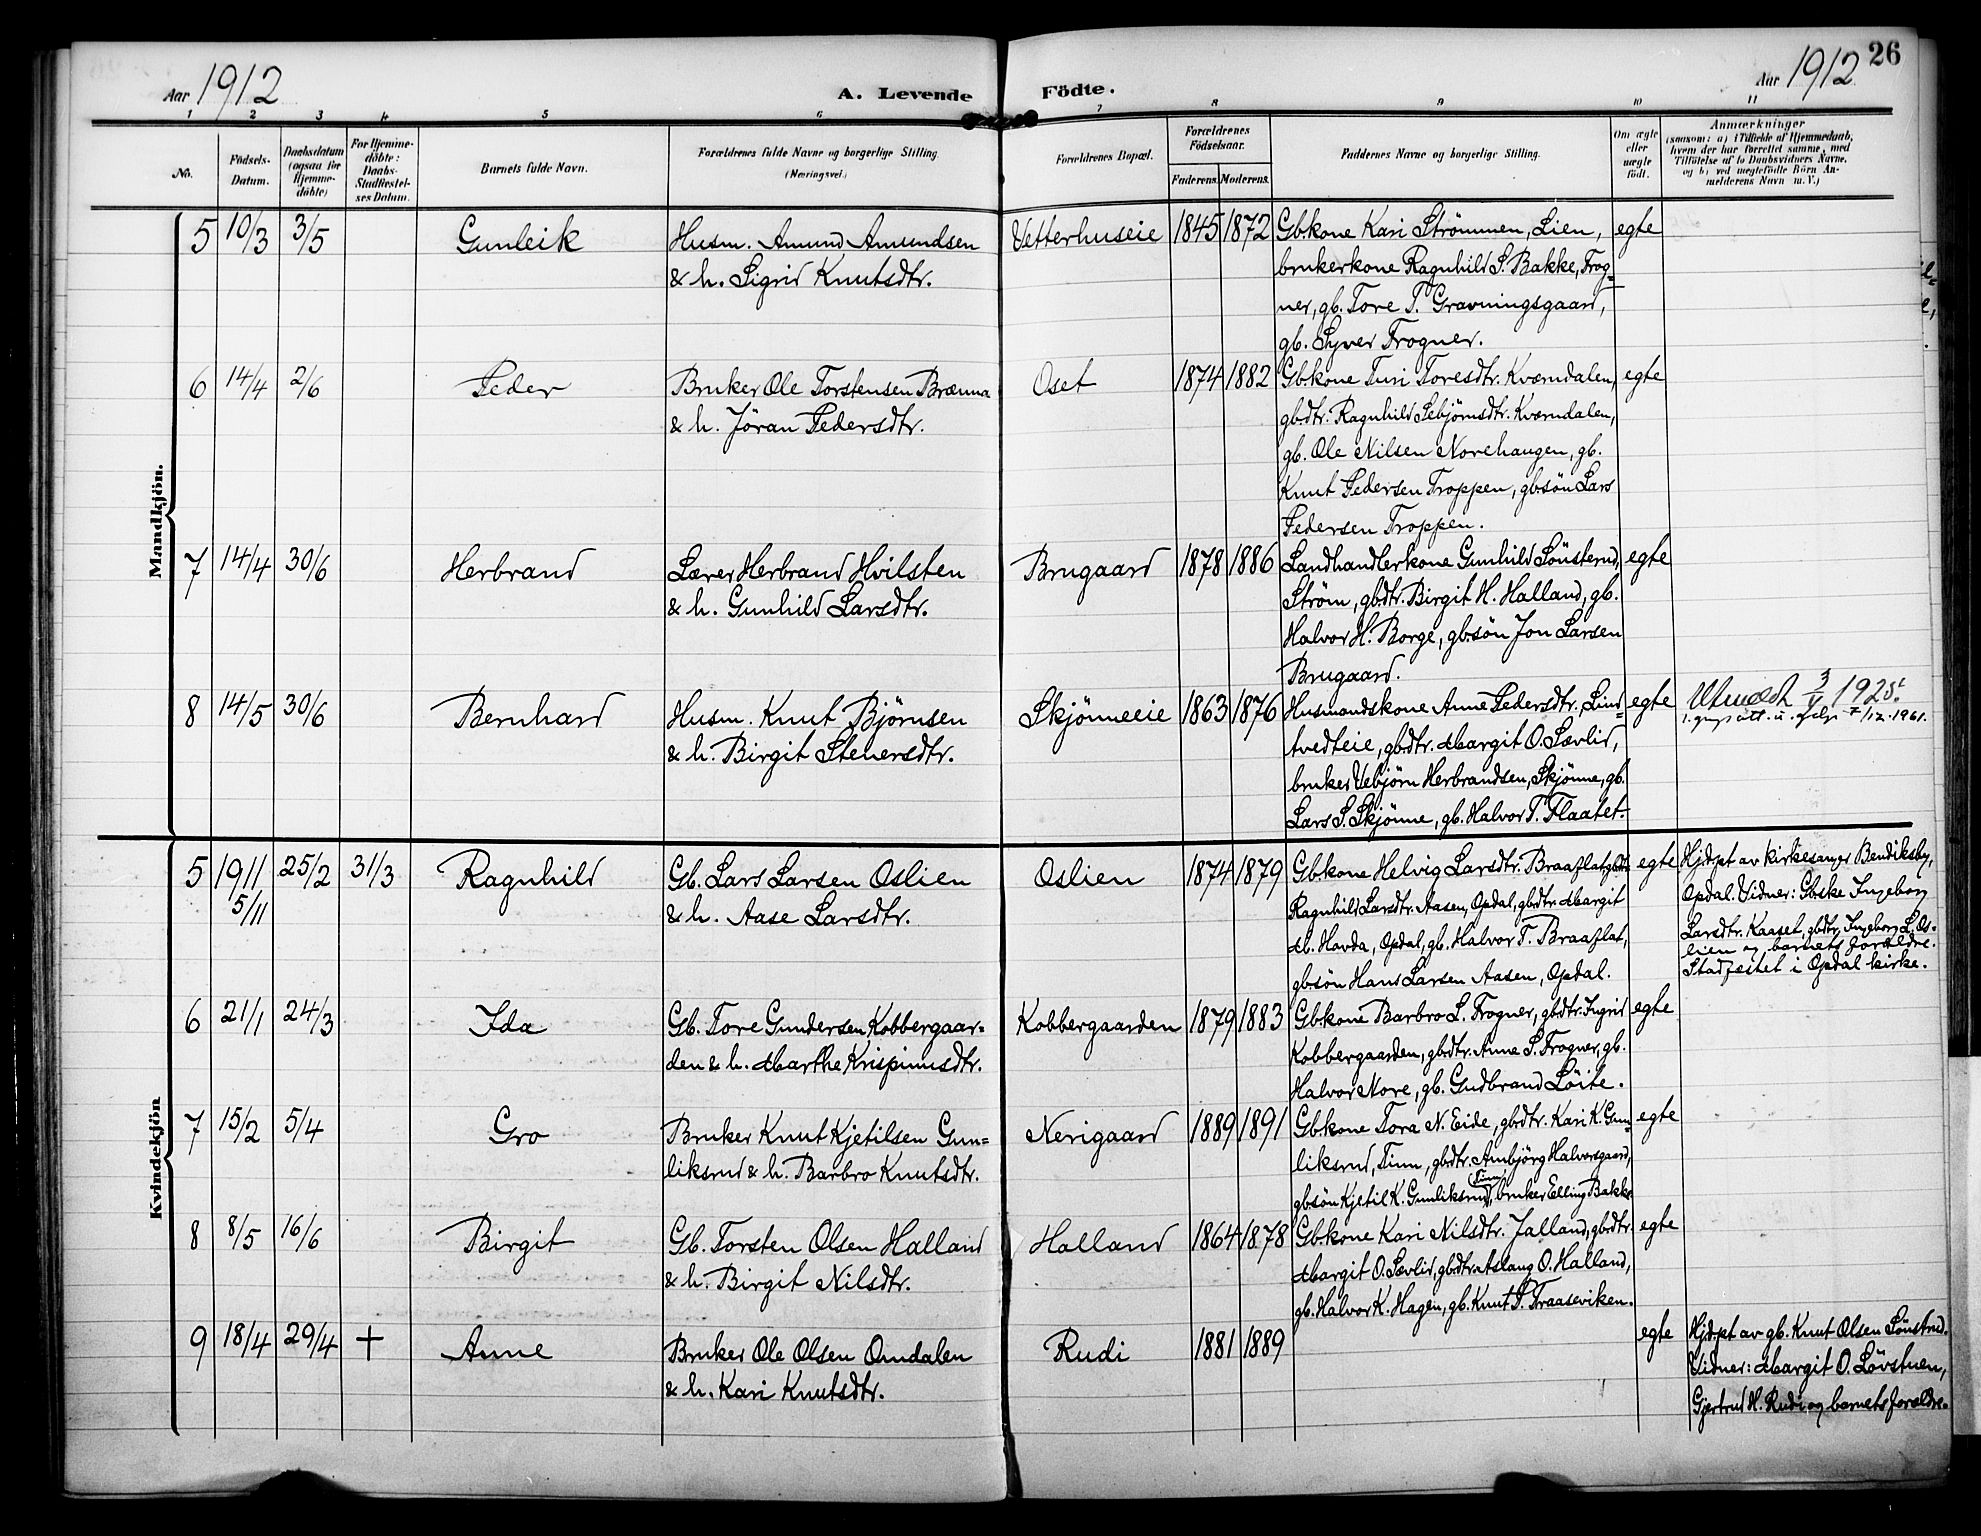 Aar 1912
A. Levende Födte.
Aar 1912
26
1 2 3 4 5 6 7 8 9 10 11
No.
Födsels-
Datum.
Daabsdatum
(ogsaa for
Hjemme-
döbte)
For Hjemme-
döbte:
Daabs-
Stadfæstel-
ses Datum.
Barnets fulde Navn.
Forældrenes fulde Navne og borgerlige Stilling.
(Næringsvei.)
Forældrenes Bopæl.
Forældrenes
Födselsaar.
Faderens. Moderens.
Faddernes Navne og borgerlige Stilling.
Om ægte
eller
uægte
födt.
Anmærkninger
(saasom: a) i Tilfælde af Hjemmedaab,
hvem der har forrettet samme, med
Tilföielse af to Daabsvidners Navne,
og b) ved uægtefödte Börn An-
melderens Navn m. V.)
Mandkjön.
5 10/3 3/5 Gunleik Husm. Amund Amundsen Vetterhuseie 1845 1872 Gbkone Kari Strömmen, Lien, egte
& h. Sigrid Knutsdtr. brukerkone Ragnhild S. Bakke, Frog=
ner, gb. Tore T. Gravningsgaard,
gb. Syver Frogner.
6 14/4 2/6 Peder Bruker Ole Torstensen Brænna Oset 1874 1882 Gbkone Turi Toresdtr. Kværndalen, egte
& h. Jöran Pedersdtr. gbdtr. Ragnhild Sebjörnsdtr. Kværndalen,
gb. Ole Nilsen Norehaugen, gb.
Knut Pedersen Troppen, gbsön Lars
Pedersen Troppen.
7 14/4 30/6 Herbrand Lærer Herbrand Hvilsten Brugaard 1878 1886 Landhandlerkone Gunhild Sönsterud, egte
& h. Gunhild Larsdtr. Ström, gbdtr. Birgit H. Halland, gb.
Halvor H. Borge, gbsön Jon Larsen
Brugaard.
8 14/5 30/6 Bernhard Husm. Knut Björnsen Skjönneeie 1863 1876 Husmandskone Anne Pedersdtr., Lind= egte Utmeldt 3/4 1925.
& h. Birgit Stenersdtr. tvedteie, gbdtr. Margit O. Sævlid, 1961.
bruker Vebjörn Herbrandsen, Skjönne, gb.
Lars S. Skjönne, gb. Halvor T. Flaatet.
Kvindekjön
5 1911 25/2 31/3 Ragnhild Gb. Lars Larsen Oslien Oslien 1874 1879 Gbkone Helvig Larsdtr. Braaflat, gbdtr. egte Hjdpt av kirkesanger Bendiksby,
5/11 & h. Aase Larsdtr. Ragnhild Larsdtr. Aasen, Opdal, gbdtr. Margit Opdal. Vidner: Gbske Ingeborg
M. Hovda, Opdal, gb. Halvor T. Braaflat, Larsdtr. Kaaset, gbdtr. Ingeborg L. Os-
gbsön Hans Larsen Aasen, Opdal. lien og barnets forældre.
Stadfæstet i Opdal kirke.
6 21/1 24/3 Ida Gb. Tore Gundersen Kobbergaar= Kobbergaarden 1879 1883 Gbkone Barbro L. Frogner, gbdtr. Ingrid egte
den & h. Marthe Krispinusdtr. Kobbergaarden, gbdtr. Anne S. Frogner, gb.
Halvor Nore, gb. Gudbrand Löite.
7 15/2 5/4 Gro Bruker Knut Kjetilsen Gun= Nerigaard 1889 1891 Gbkone Tora N. Eide, gbdtr. Kari K. Gun= egte
liksrud & h. Barbro Knutsdtr. liksrud, Tinn, gbdtr. Ambjörg Halvorsgaard,
gbsön Kjetil K. Gunliksrud, Tinn, bruker Elling Bakke.
8 8/5 16/6 Birgit Gb. Torsten Olsen Halland Halland 1864 1878 Gbkone Kari Nilsdtr. Jalland, gbdtr. egte
& h. Birgit Nilsdtr. Margit O. Sævlid, gbdtr. Aslaug O. Halland,
gb. Halvor K. Hagen, gb. Knut P. Traaseviken.
9 18/4 29/4 + Anne Bruker Ole Olsen Omdalen Rudi 1881 1889 egte Hjdpt av gb. Knut Olsen Sönstrud.
& h. Kari Knutsdtr. Vidner: Margit O. Lövstuen,
Gjertrud H. Rudi og barnets forældre.